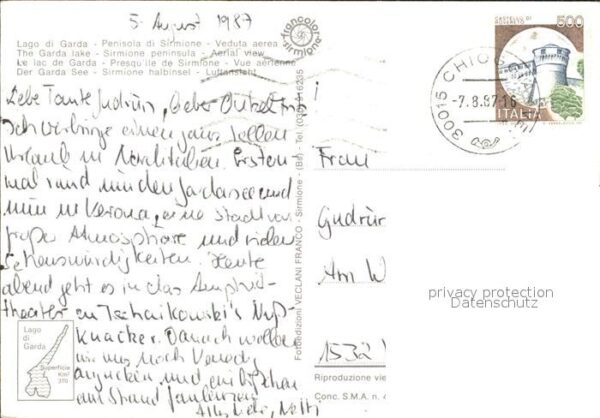 5. August 1987
Lago di Garda - Penisola di Sirmione - Veduta aerea
The Garda lake - Sirmione peninsula - Aerial view
Le lac de Garde - Presqu'ile de Sirmione - Vue aérienne
Der Garda See - Sirmione halbinsel - Luftansicht
Liebe Tante Gudrun, lieber Onkel
ich verbringe einen ganz tollen
Urlaub in Norditalien. Ersten-
mal sind wir den Gardasee und
nun in Verona, eine Stadt von
großer Atmosphäre und vielen
Sehenswürdigkeiten. Heute
abend geht es in das Amphi-
theater zu Tschaikowski's Nuß-
knacker. Danach wollen
wir uns noch Venedig
angucken und ein bißchen
am Strand faulenzen
Alles Liebe,
Lago
di
Garda
Superficie
Km²
370
francolor
sirmione
Fotoedizioni VECLANI FRANCO - Sirmione - (Bs) - Tel. (030) 916235
500
ITALIA
30015 CHIOGGIA
-7.8.87.16
Frau
Gudrun
Am W
1532
privacy protection
Datenschutz
Riproduzione vie
Conc. S.M.A. n.